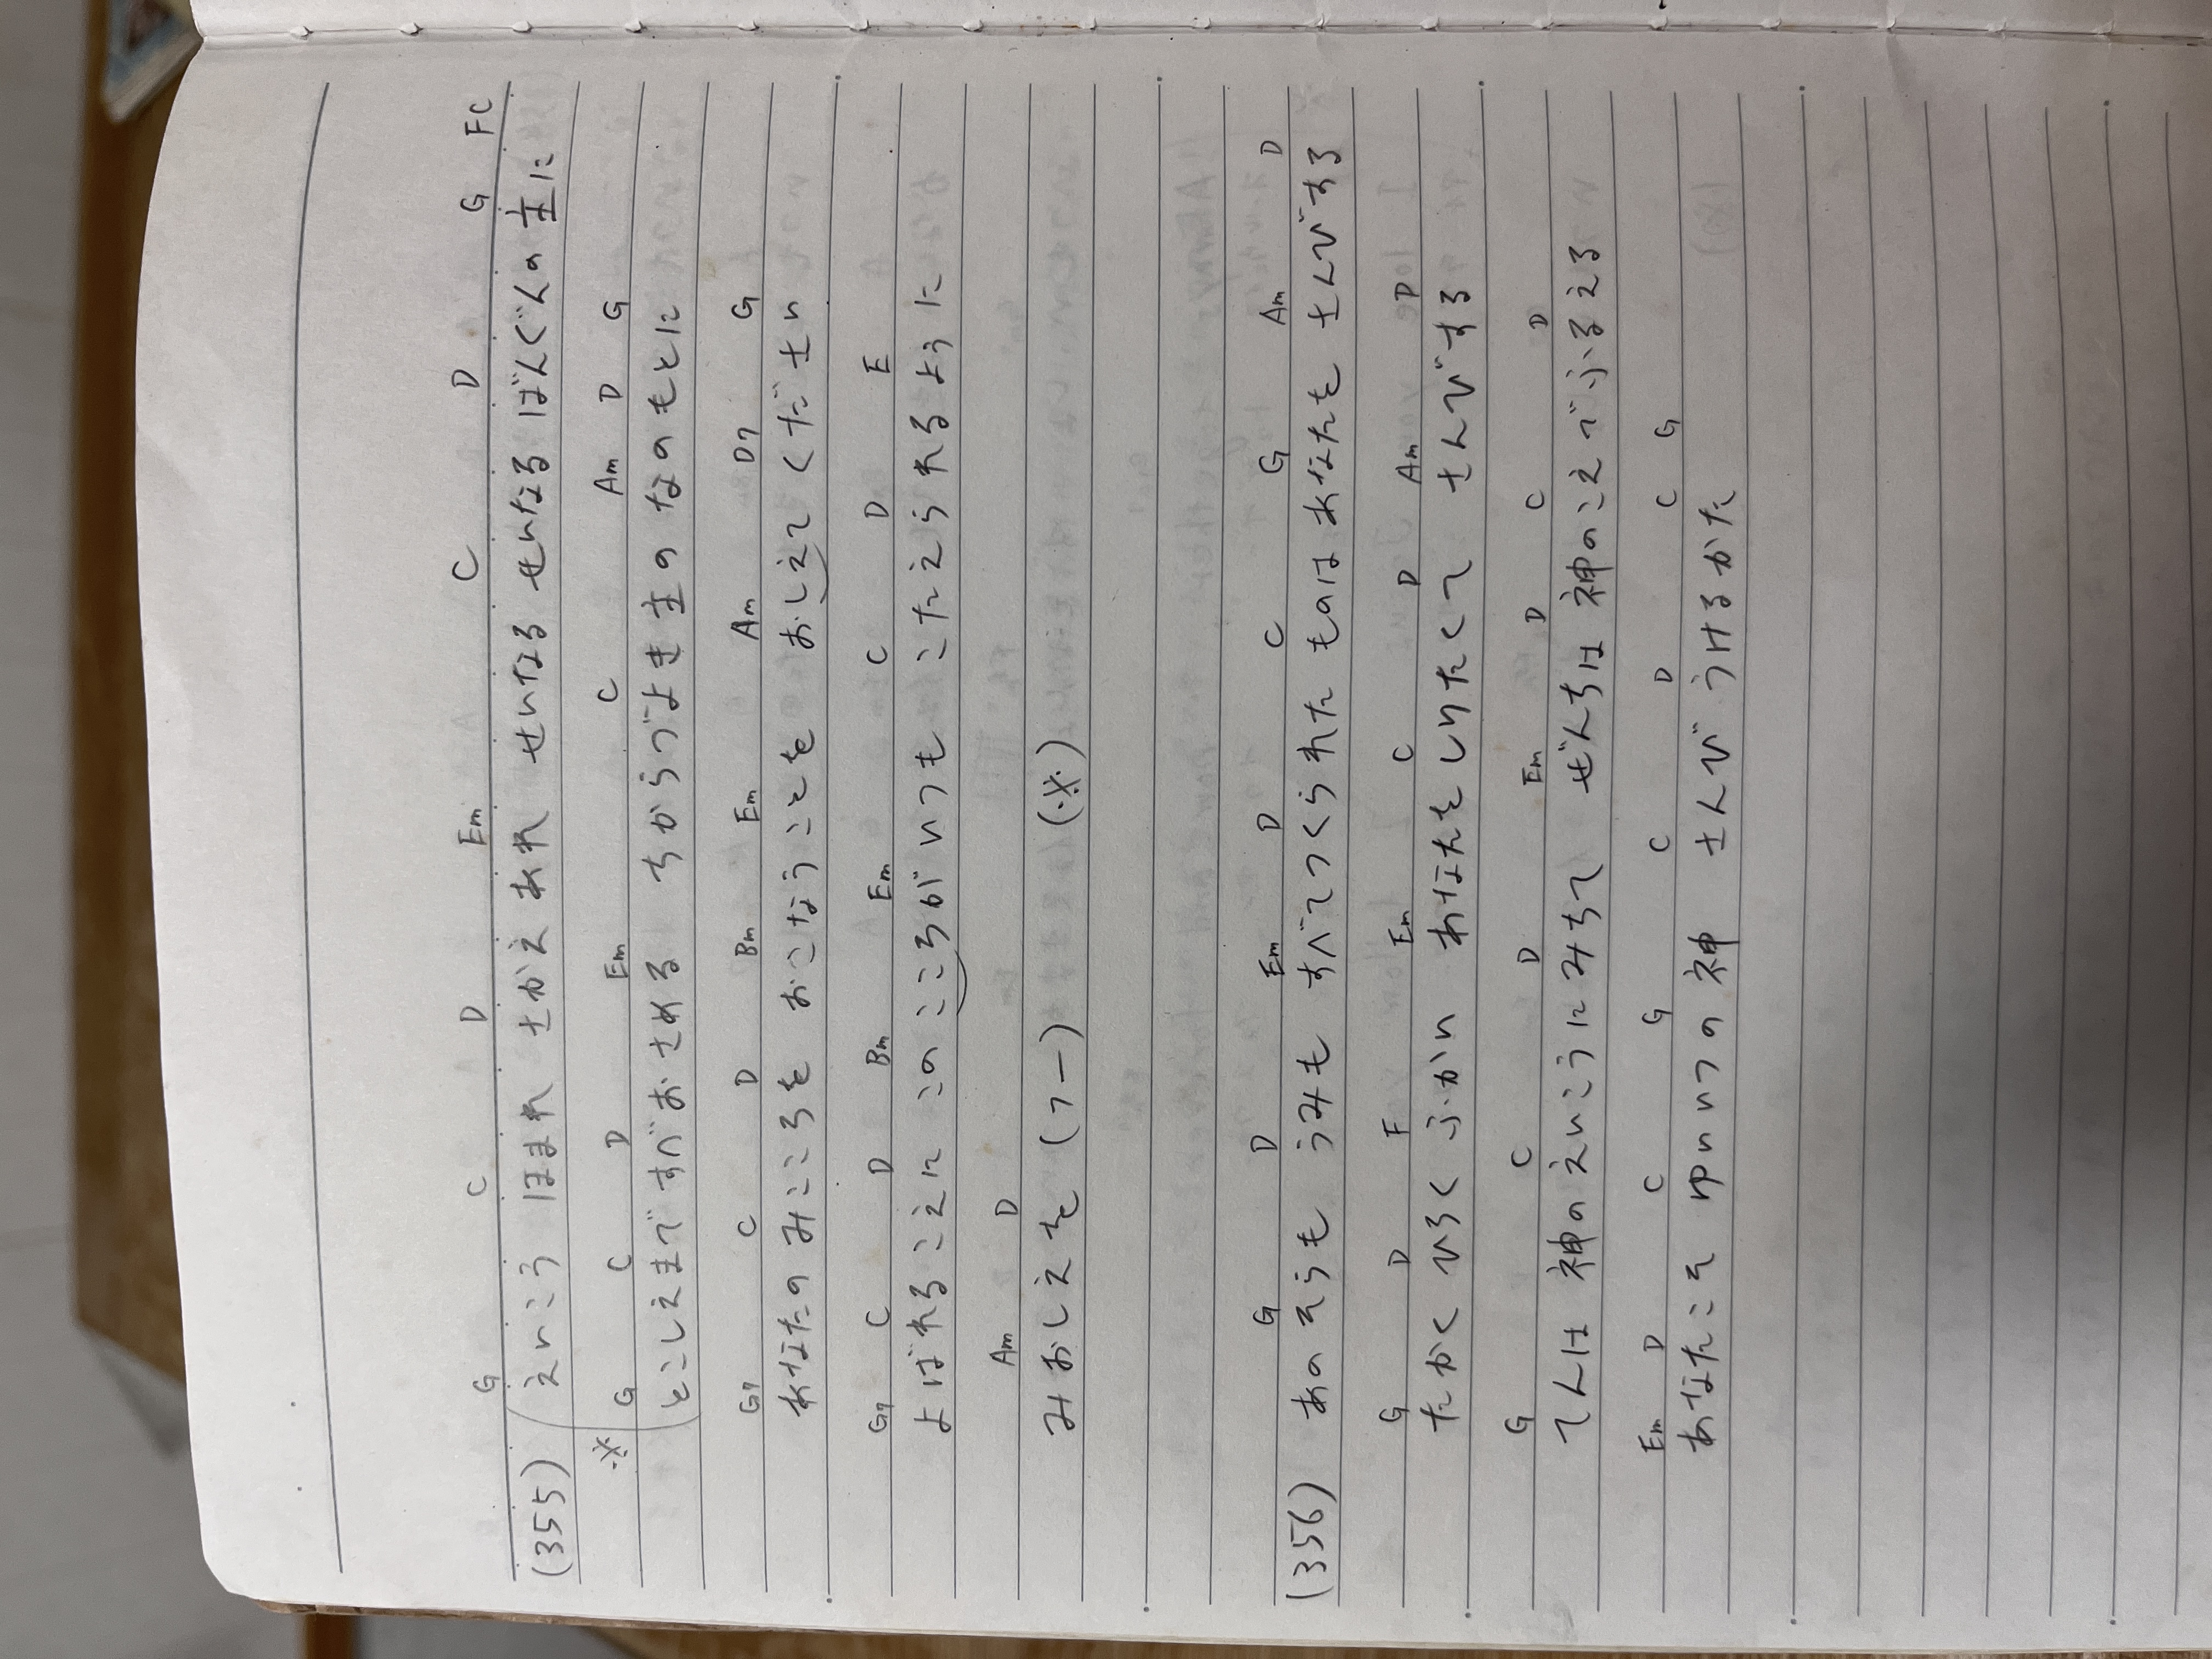 G C D Em C D G F C
(355) えいこう ほまれ さかえあれ せいなる せいなる せいなる ばんぐんの主に
※ G C D Em C Am D G
とこしえまで すべおさめる ちからづよき主の なのもとに
G7 C D Bm Em Am D7 G
あなたの みこころを おこなうことを おしえてください
G7 C D Bm Em C D E
よばれるこえに このこころが いつも こたえられるように
Am D
みおしえを (ﾌー) (※)
G D Em D C G Am D
(356) あのそらも うみも すべてつくられた ものは あなたを さんびする
G D F Em C D Am D
たかく ひろく ふかい あなたをしりたくて さんびする
G C D Em D C D
てんは 神のえいこうにみちて ぜんちは 神のこえで ふるえる
Em D C G C D C G
あなたこそ ゆいいつの神 さんび うけるかた